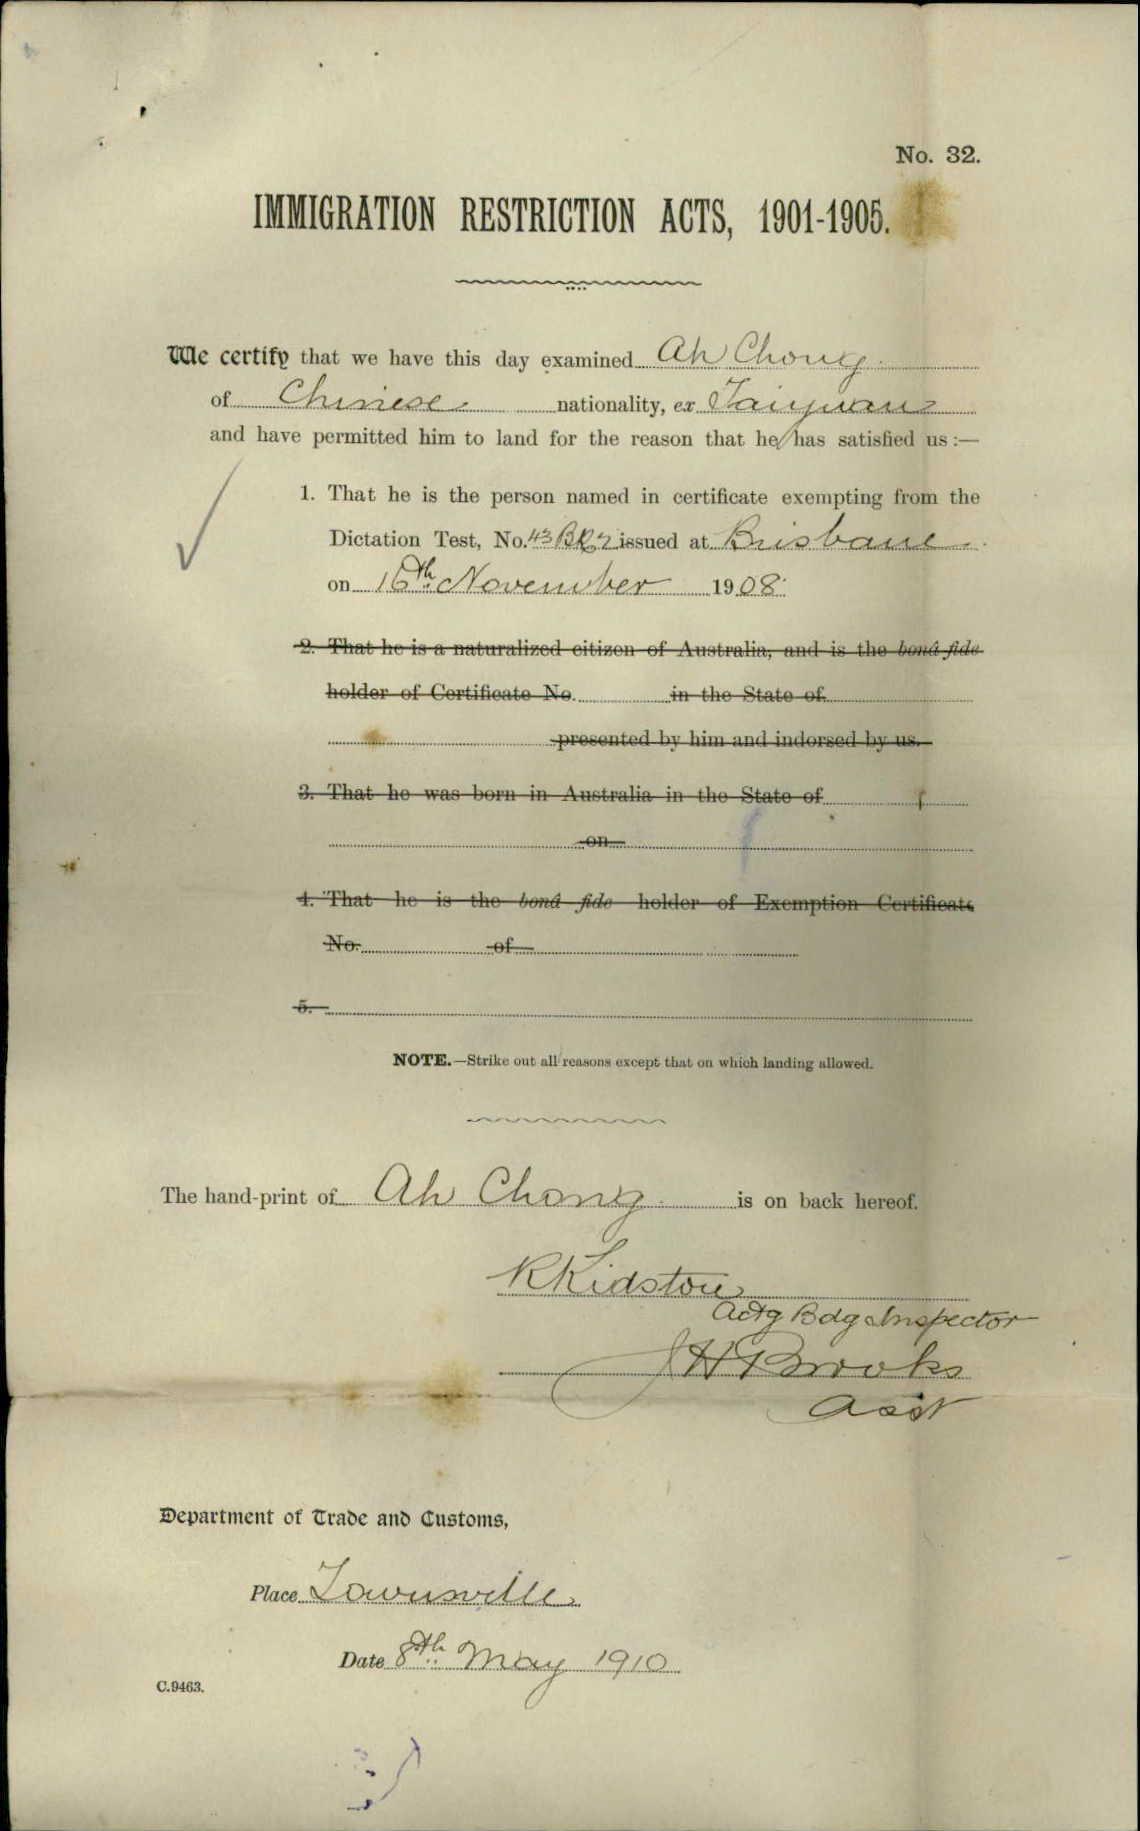 No. 32.
IMMIGRATION RESTRICTION ACTS, 1901-1905.
We certify that we have this day examined Ah Chong
of Chinese nationality, ex Taiyuan
and have permitted him to land for the reason that he has satisfied us :—
1. That he is the person named in certificate exempting from the
Dictation Test, No. 43 issued at Brisbane
on 16th November 1908
2. That he is a naturalized citizen of Australia, and is the bonâ fide
holder of Certificate No. in the State of
presented by him and indorsed by us.
3. That he was born in Australia in the State of
on
4. That he is the bonâ fide holder of Exemption Certificate
No. of
5.
NOTE.—Strike out all reasons except that on which landing allowed.
The hand-print of Ah Chong is on back hereof.
R Kidston
Actg Bdg Inspector
J H Brooks
Asst
Department of Trade and Customs,
Place Townsville
Date 8th May 1910
C.9463.